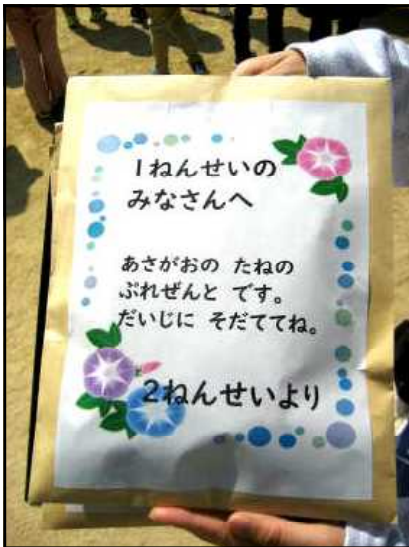 1ねんせいの
みなさんへ
あさがおの たねの
ぷれぜんと です。
だいじに そだててね。
2ねんせいより